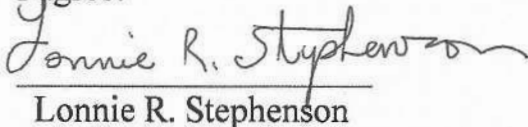 Lonnie R. Stephenson
Lonnie R. Stephenson